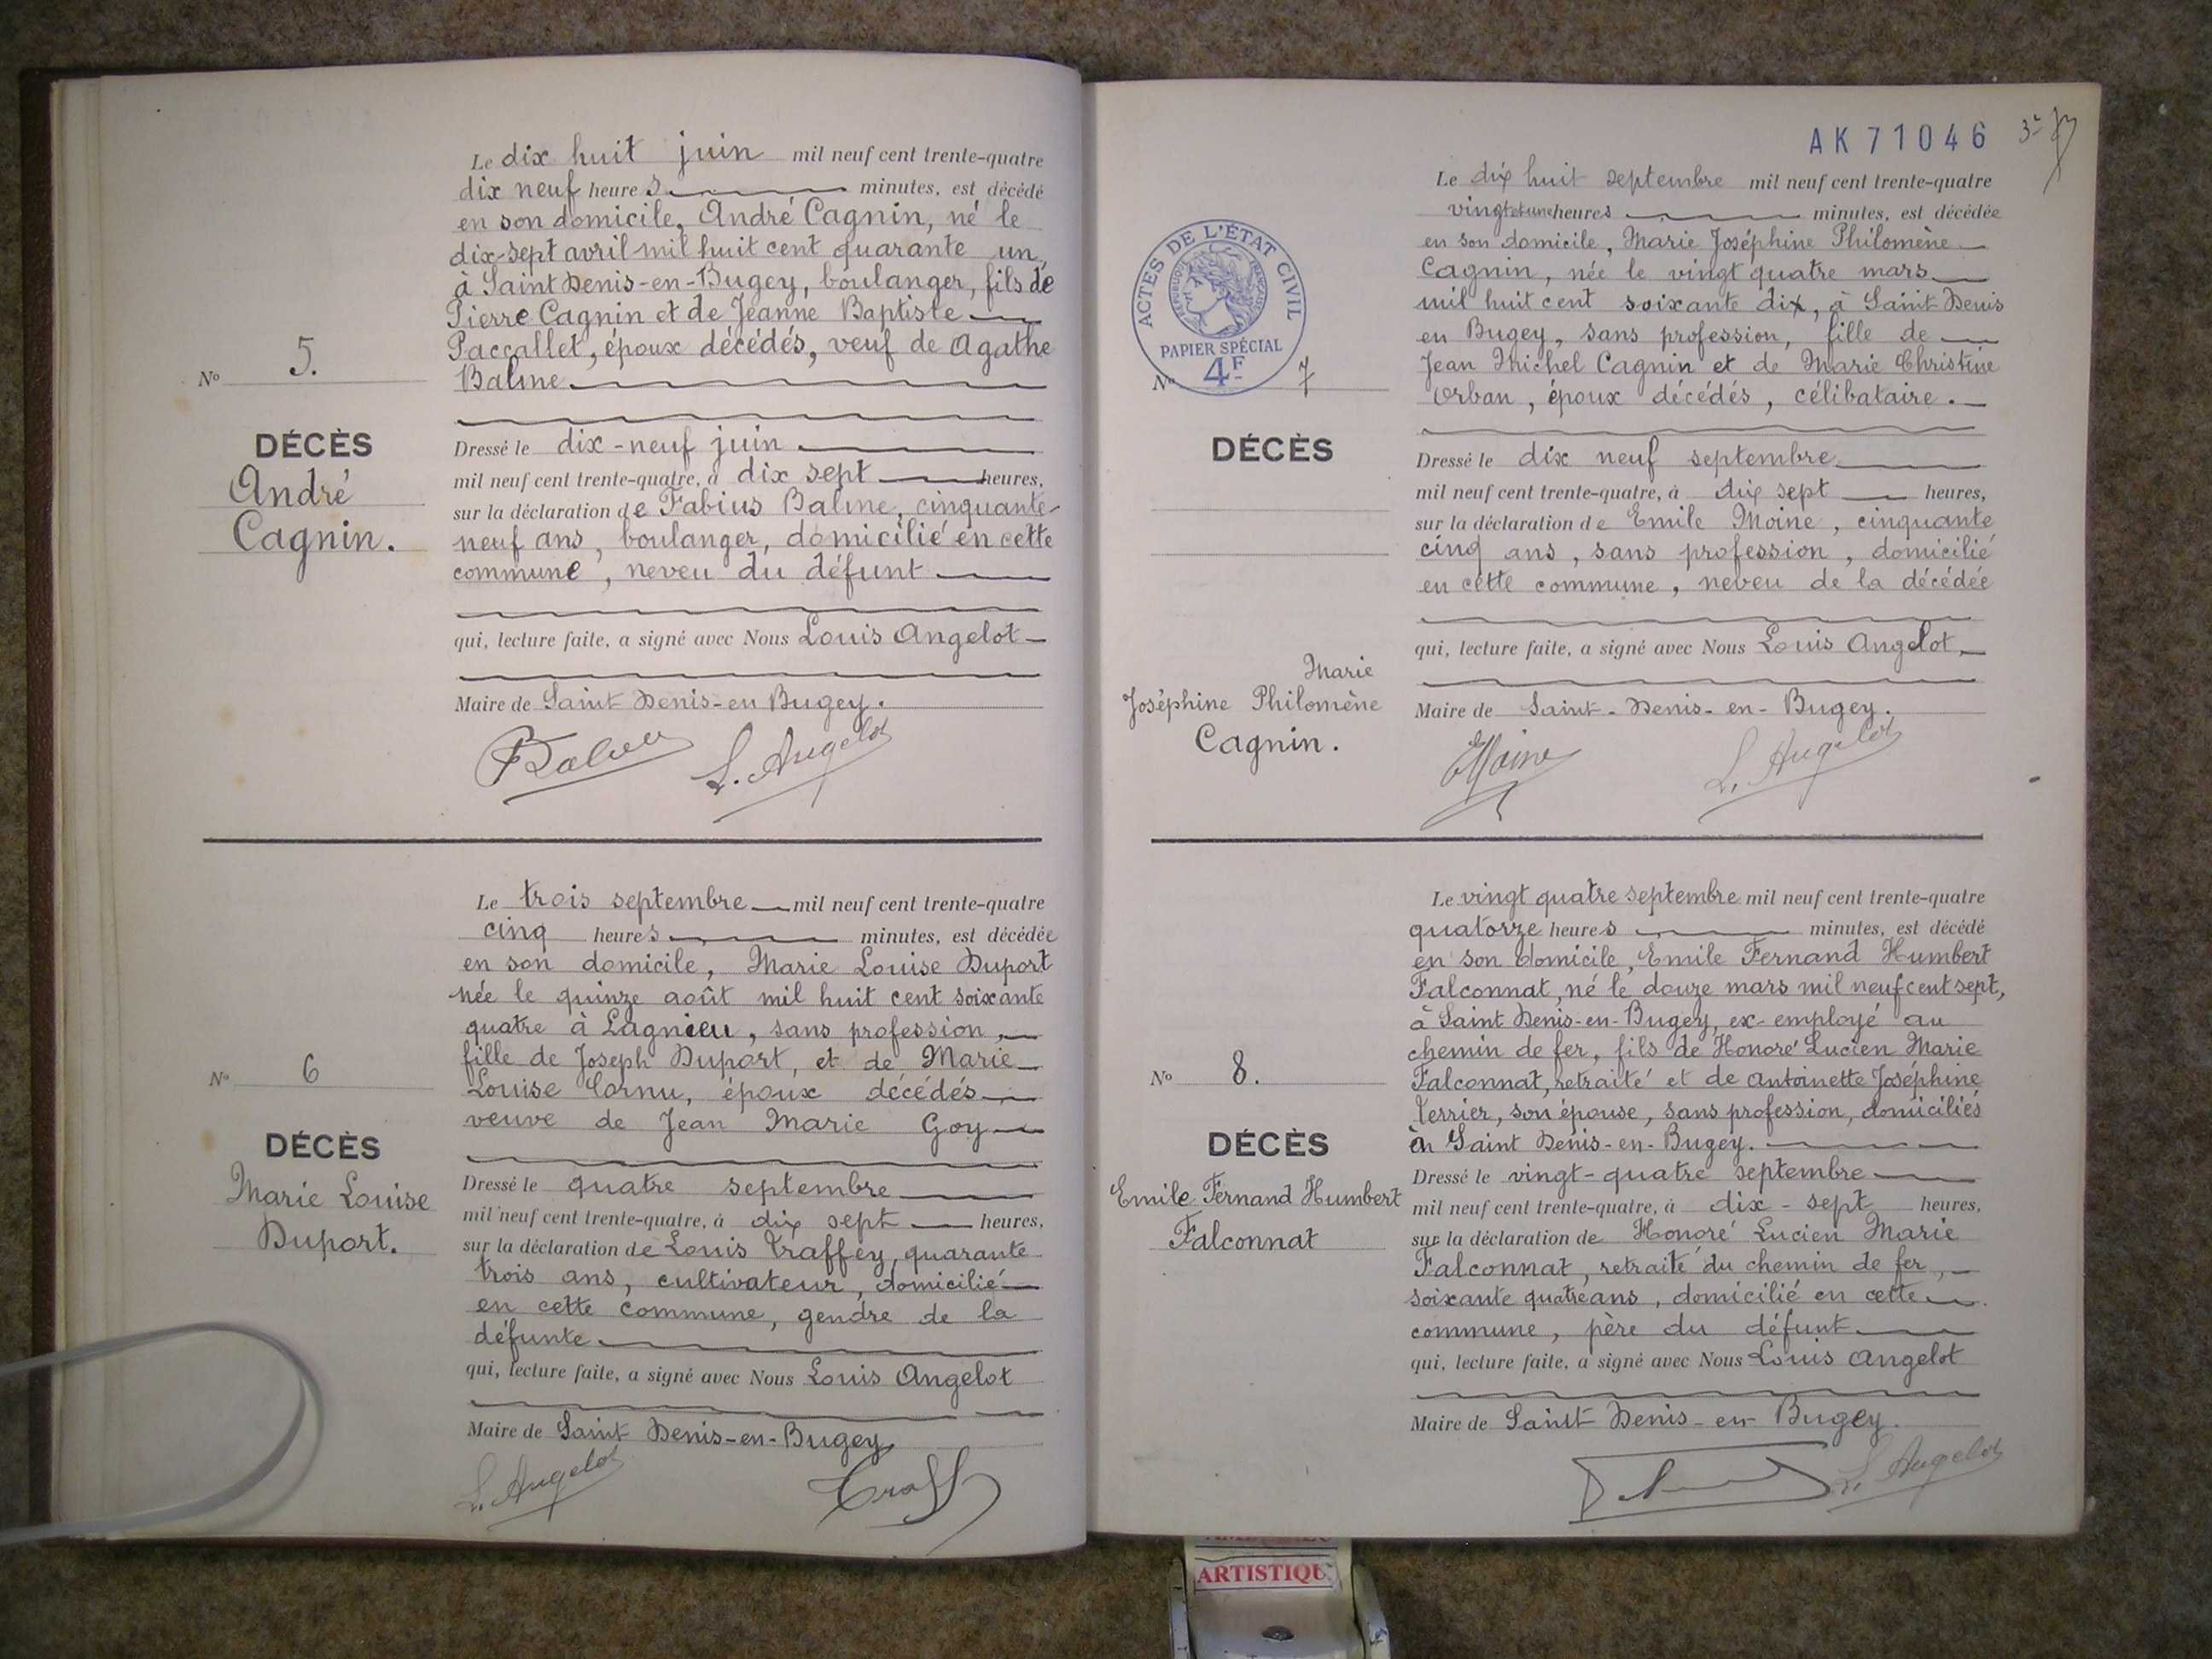 Le dix huit juin mil neuf cent trente-quatre
dix neuf heures minutes, est décédé
en son domicile, André Cagnin, né le
dix-sept avril mil huit cent quarante un,
à Saint Denis-en-Bugey, boulanger, fils de
Pierre Cagnin et de Jeanne Baptiste
Paccallet, époux décédés, veuf de Agathe
Balme
No 5.
DÉCÈS
André
Cagnin.
Dressé le dix-neuf juin
mil neuf cent trente-quatre, à dix sept heures,
sur la déclaration de Fabius Balme, cinquante-
neuf ans, boulanger, domicilié en cette
commune, neveu du défunt
qui, lecture faite, a signé avec Nous Louis Angelot
Maire de Saint Denis-en Bugey.
L. Angelot
Le trois septembre mil neuf cent trente-quatre
cinq heures minutes, est décédée
en son domicile, Marie Louise Duport
née le quinze août mil huit cent soixante
quatre à Lagnieu, sans profession,
fille de Joseph Duport, et de Marie
Louise Cornu, époux décédés
veuve de Jean Marie Goy
No 6
DÉCÈS
Marie Louise
Duport.
Dressé le quatre septembre
mil neuf cent trente-quatre, à dix sept heures,
sur la déclaration de Louis Traffey, quarante
trois ans, cultivateur, domicilié
en cette commune, gendre de la
défunte
qui, lecture faite, a signé avec Nous Louis Angelot
Maire de Saint Denis-en-Bugey
L. Angelot
AK 71046
Le dix huit septembre mil neuf cent trente-quatre
vingt et une heures minutes, est décédée
en son domicile, Marie Joséphine Philomène
Cagnin, née le vingt quatre mars
mil huit cent soixante dix, à Saint Denis
en Bugey, sans profession, fille de
Jean Michel Cagnin et de Marie Christine
Orban, époux décédés, célibataire.
ACTES DE L'ÉTAT CIVIL
RÉPUBLIQUE FRANÇAISE
PAPIER SPÉCIAL
4F
No 7
DÉCÈS
Marie
Joséphine Philomène
Cagnin.
Dressé le dix neuf septembre
mil neuf cent trente-quatre, à dix sept heures,
sur la déclaration de Emile Moine, cinquante
cinq ans, sans profession, domicilié
en cette commune, neveu de la décédée
qui, lecture faite, a signé avec Nous Louis Angelot
Maire de Saint-Denis-en-Bugey.
EMoine L. Angelot
Le vingt quatre septembre mil neuf cent trente-quatre
quatorze heures minutes, est décédé
en son domicile, Emile Fernand Humbert
Falconnat, né le douze mars mil neuf cent sept,
à Saint Denis-en-Bugey, ex-employé au
chemin de fer, fils de Honoré Lucien Marie
Falconnat, retraité et de Antoinette Joséphine
Terrier, son épouse, sans profession, domiciliés
en Saint Denis-en-Bugey.
No 8.
DÉCÈS
Emile Fernand Humbert
Falconnat
Dressé le vingt-quatre septembre
mil neuf cent trente-quatre, à dix-sept heures,
sur la déclaration de Honoré Lucien Marie
Falconnat, retraité du chemin de fer,
soixante quatre ans, domicilié en cette
commune, père du défunt
qui, lecture faite, a signé avec Nous Louis Angelot
Maire de Saint Denis-en-Bugey.
L. Angelot
ARTISTIQU